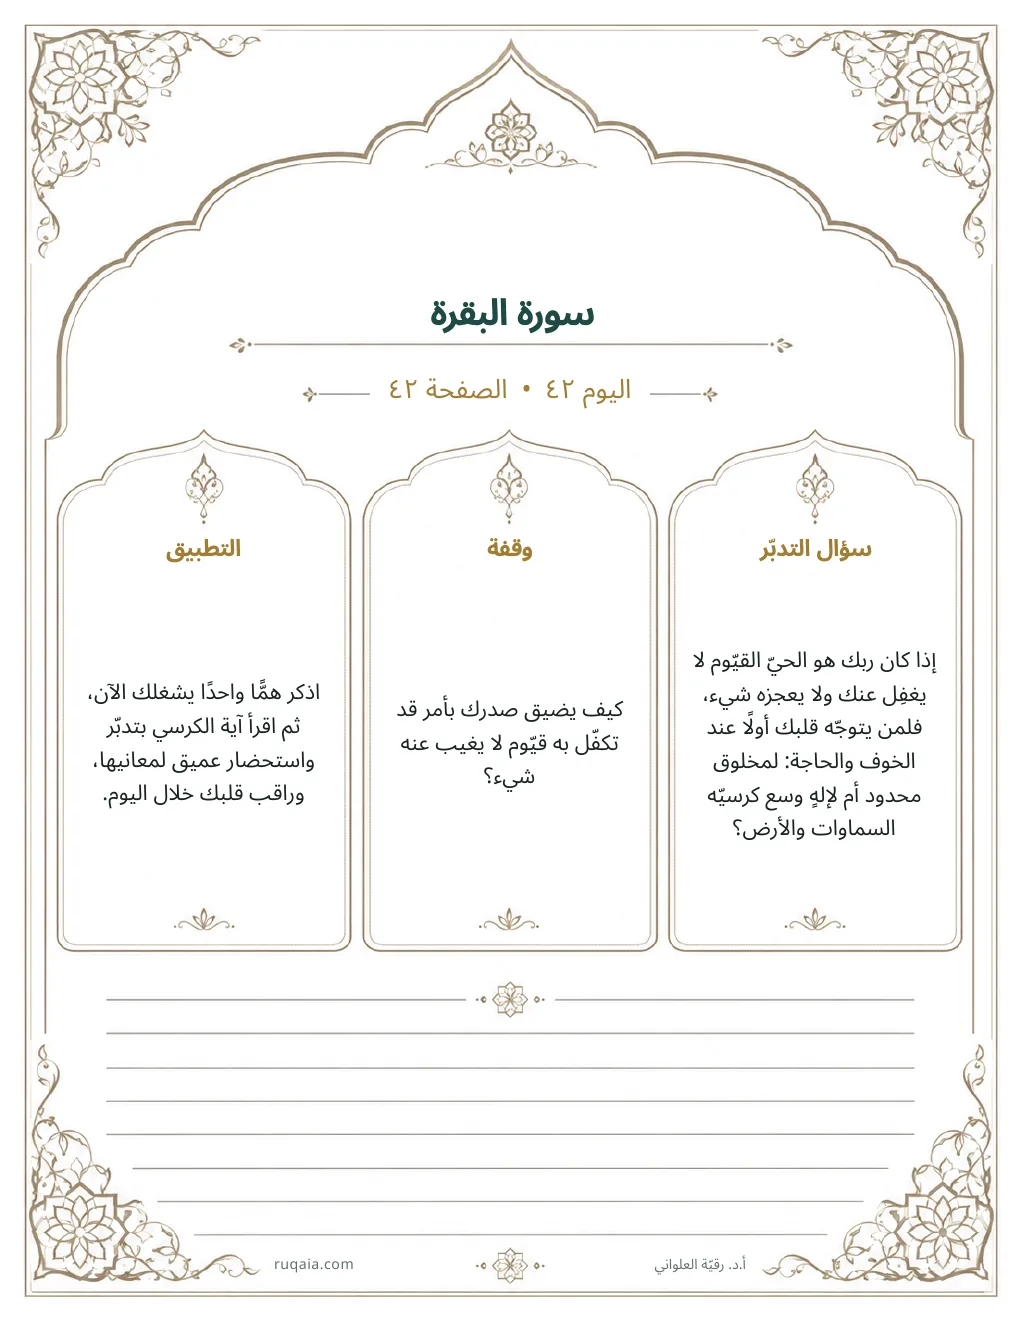 سورة البقرة
اليوم ٤٢ • الصفحة ٤٢
سؤال التدبّر
إذا كان ربك هو الحيّ القيّوم لا
يغفِل عنك ولا يعجزه شيء،
فلمن يتوجّه قلبك أولًا عند
الخوف والحاجة: لمخلوق
محدود أم لإلهٍ وسع كرسيّه
السماوات والأرض؟
وقفة
كيف يضيق صدرك بأمر قد
تكفّل به قيّوم لا يغيب عنه
شيء؟
التطبيق
اذكر همًّا واحدًا يشغلك الآن،
ثم اقرأ آية الكرسي بتدبّر
واستحضار عميق لمعانيها،
وراقب قلبك خلال اليوم.
أ.د. رقيّة العلواني
ruqaia.com